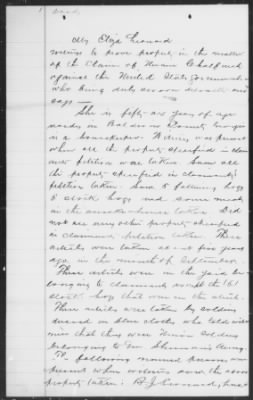 Mrs Eliza Leonard
witness to prove property in the matter
of the Claim of Hiram
against the United States Government
who being duly sworn deposeth and
says —
She is fifty six years of age
resides on Baldwin County Georgia
is a housekeeper. Witness was present
when all the property specified in claim
ants petition was taken. Saw all
the property specified in claimants
petition taken. Saw 5 fattening hogs
5 stock hogs and some meat
in the smoke-house taken. Did
not see any other property specified
in claimants petition taken. These
articles were taken about five years
ago in the month of September.
These articles were in the yard be-
longing to claimant except the (5)
stock hogs that were in the field.
These articles were taken by soldiers
dressed in blue clothes who told wit-
ness that they were Union Soldiers
belonging to Gen Sherman's Army.
The following named persons were
present when witness saw the above
property taken. R. J. Leonard,